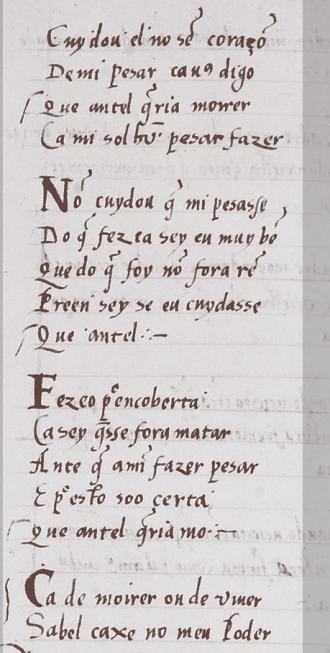 Cuydou el no seu coraçõ
De mi pesar cauꝯ digo
Que antel q̃ria morrer
Ca mi sol pesar fazer
Nõ cuydou q̃ mi pesasse
Do q̃ fez ca sey eu muy bẽ
Que do q̃ foy nõ fora rẽ
Preen sey se eu cuydasse
Que antel :-
Fezeo encoberta
Ca sey fora matar
Ante q̃ ami fazer pesar
E soo certa
Que antel q̃ria mo :-
Ca de moirer ou de viuer
Sabel caxe no meu Poder